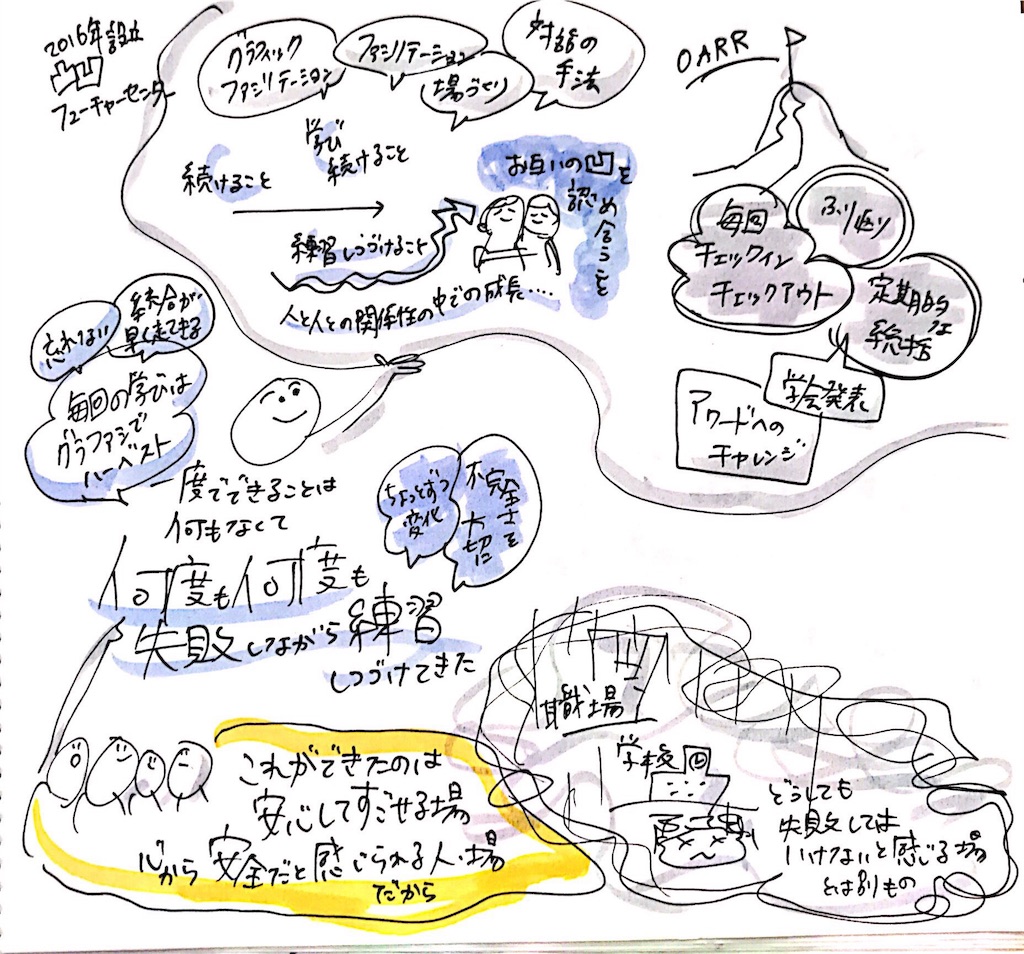 2016年設立
フューチャーセンター
グラフィック
ファシリテーション
ファシリテーション
場づくり
対話の
手法
OARR
続けること
学び
続けること
練習しつづけること
お互いの凹を
認め合うことを
人と人との関係性の中での成長….
毎回
チェックイン
チェックアウト
ふり返り
定期的な
総括
学会発表
アワードへの
チャレンジ
忘れない
統合が
早くできる
毎回の学びは
グラファシで
ハーベスト
一度でできることは
何もなくて
何度も何度も
失敗しながら練習
しつづけてきた
ちょっとずつ
変化
不完全さを
大切に
これができたのは
安心してすごせる場
心から安全だと感じられる人・場
だから
職場
学校
どうしても
失敗しては
いけないと感じる場
とは別もの